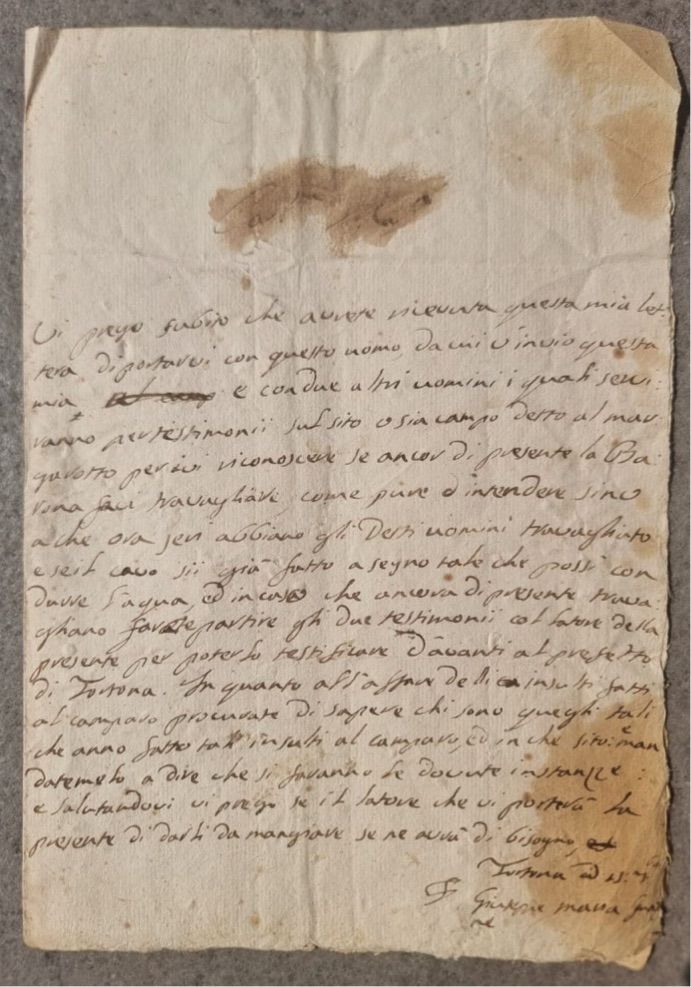 Vi prego subito che avrete ricevuta questa mia let-
tera di portarvi con questo uomo, da cui v'invio questa
mia e con due altri uomini i quali servi-
ranno per testimonii sul sito o sia campo detto al mar-
garotto per ivi riconoscere se ancor di presente la Ba-
rona faci travagliare, come pure d'intendere sino
a che ora jeri abbiano gli detti uomini travagliato
e se il cavo sii già fatto a segno tale che possi con
durre l'aqua, ed in caso che ancora di presente trava-
gliano farete partire gli due testimonii col latore della
presente per poterlo testificare d'avanti al prefetto
di Tortona. In quanto all'affare delli insulti fatti
al camparo procurate di sapere chi sono quegli tali
che anno fatto tali insulti al camparo, ed in che sito: e man
datemelo a dire che si faranno le dovute instanze:
e salutandovi vi prego se il latore che vi porterà la
presente di darli da mangiare se ne avrà di bisogno,
Tortona ad
Giuseppe Maria